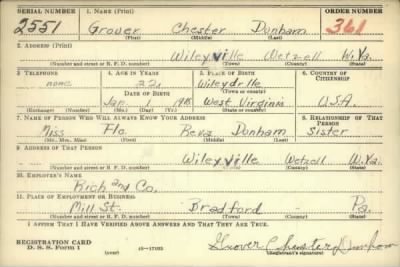 SERIAL NUMBER 1. NAME (Print) ORDER NUMBER
2551 Grover Chester Dunham 361
(First) (Middle) (Last)
2. ADDRESS (Print)
Wileyville Wetzell W.Va.
(Number and street or R. F. D. number) (Town) (County) (State)
3. TELEPHONE 4. AGE IN YEARS 5. PLACE OF BIRTH 6. COUNTRY OF CITIZENSHIP
none 22 Wileyville
DATE OF BIRTH (Town or county)
Jan. 1 1918 West Virginia U.S.A.
(Exchange) (Number) (Mo.) (Day) (Yr.) (State or country)
7. NAME OF PERSON WHO WILL ALWAYS KNOW YOUR ADDRESS 8. RELATIONSHIP OF THAT PERSON
Miss Flo. Reva Dunham Sister
(Mr., Mrs., Miss) (First) (Middle) (Last)
9. ADDRESS OF THAT PERSON
Wileyville Wetzell W.Va.
(Number and street or R. F. D. number) (Town) (County) (State)
10. EMPLOYER'S NAME
Rich and Co.
11. PLACE OF EMPLOYMENT OR BUSINESS
Mill St. Bradford Pa.
(Number and street or R. F. D. number) (Town) (County) (State)
I AFFIRM THAT I HAVE VERIFIED ABOVE ANSWERS AND THAT THEY ARE TRUE.
REGISTRATION CARD
D. S. S. Form 1 16—17105 Grover Chester Dunham
(Registrant's signature)